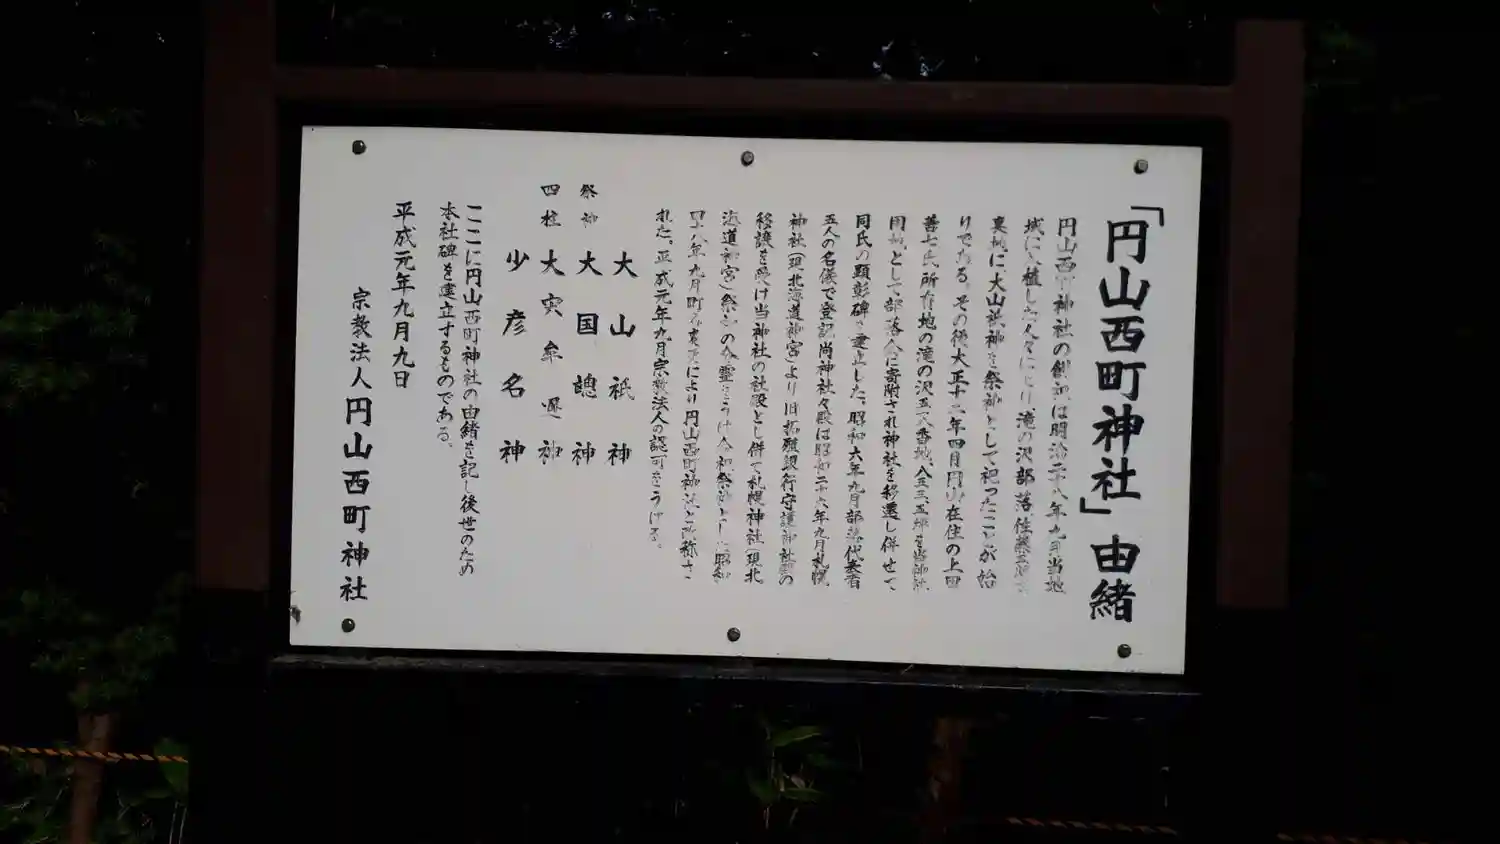 「円山西町神社」由緒
円山西町神社の創祀は明治二十八年九月当地
域に入植した人々により滝の沢部落佐藤
裏地に大山祇神を祭神として祀ったことが始
りである。その後大正十二年四月円山在住の上田
善七氏所有地の滝の沢五八番地、八五三、五坪を当神社
用地として部落会に寄附され神社を移遷し併せて
同氏の顕彰碑を建立した。昭和六年九月部落代表者
五人の名儀で登記尚神社々殿は昭和二十六年九月札幌
神社(現北海道神宮)より旧拓殖銀行守護神社殿の
移譲を受け当神社の社殿とし併て札幌神社(現北
海道神宮)祭神の分霊をうけ合祀祭神とした昭和
四十八年九月町名変更により円山西町神社と改称さ
れた。平成元年九月宗教法人の認可をうける。
大山祇神
祭神 大国魂神
四柱 大穴牟遅神
少彦名神
ここに円山西町神社の由緒を記し後世のため
本社碑を建立するものである。
平成元年九月九日
宗教法人円山西町神社